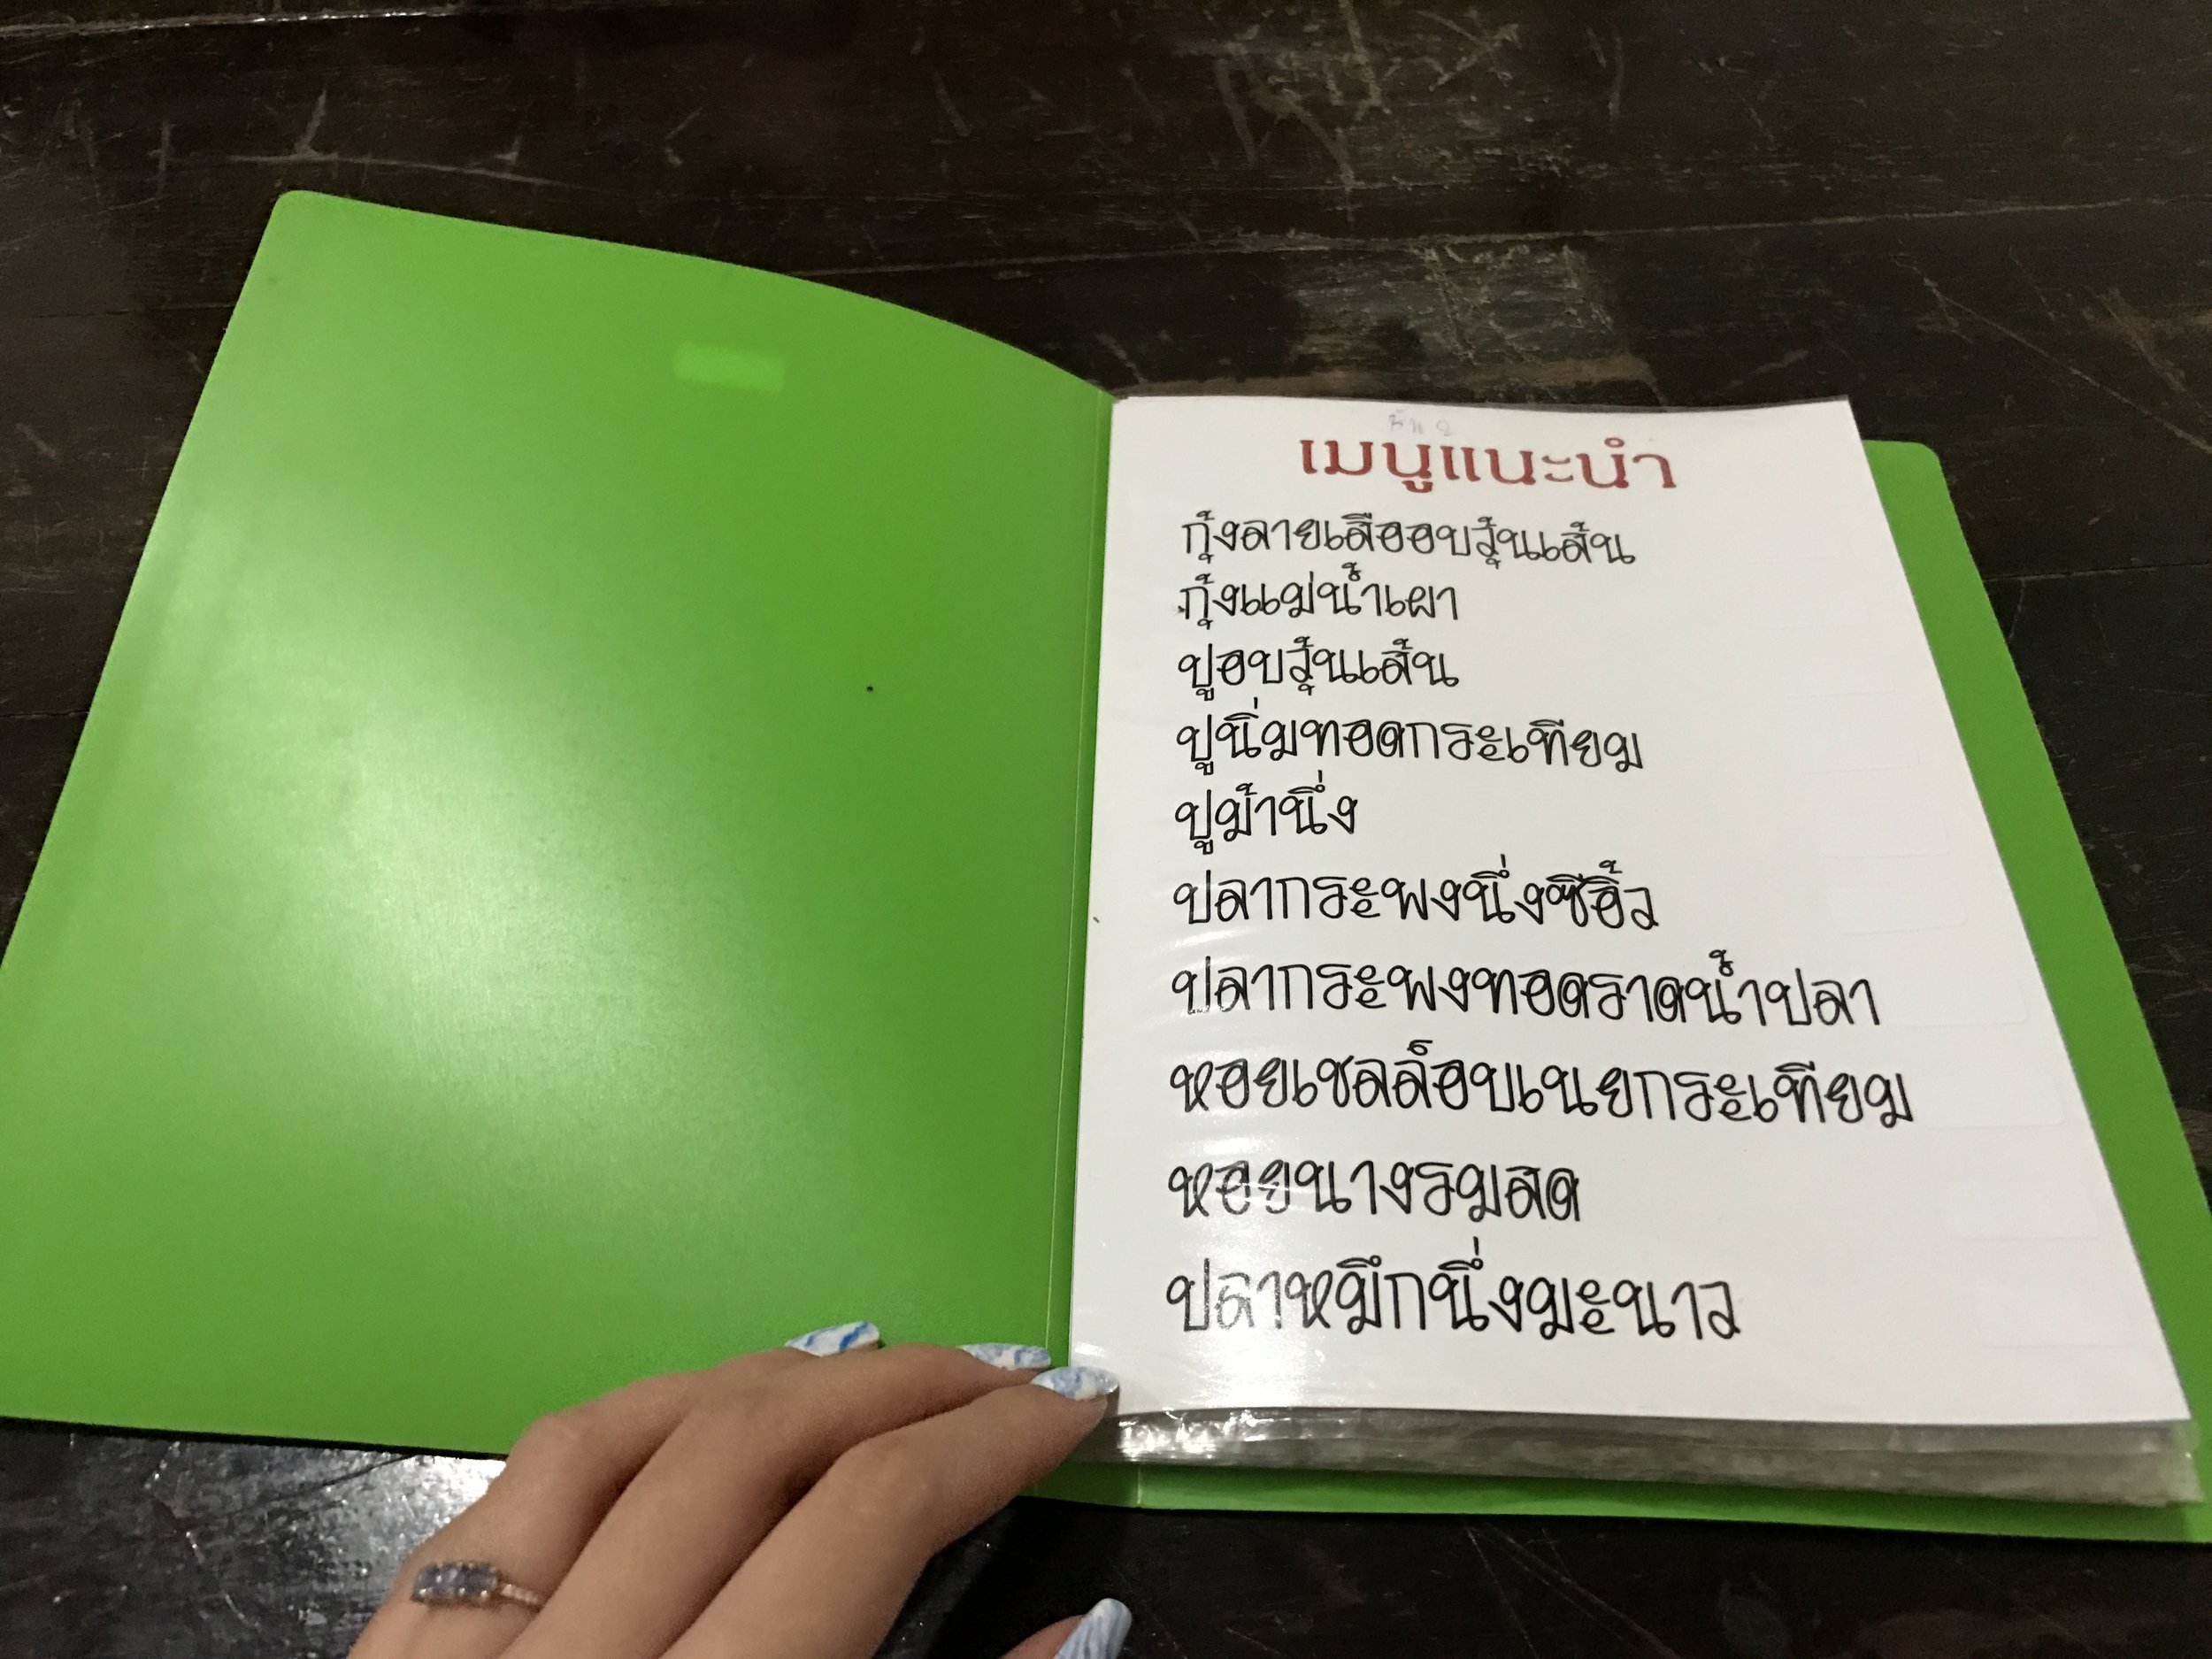 เมนูแนะนำ
กุ้งลายเสืออบวุ้นเส้น
กุ้งแม่น้ำเผา
ปูอบวุ้นเส้น
ปูนิ่มทอดกระเทียม
ปูม้านึ่ง
ปลากระพงนึ่งซีอิ้ว
ปลากระพงทอดราดน้ำปลา
หอยเชลล็อบเนยกระเทียม
หอยนางรมสด
ปลาหมึกนึ่งมะนาว